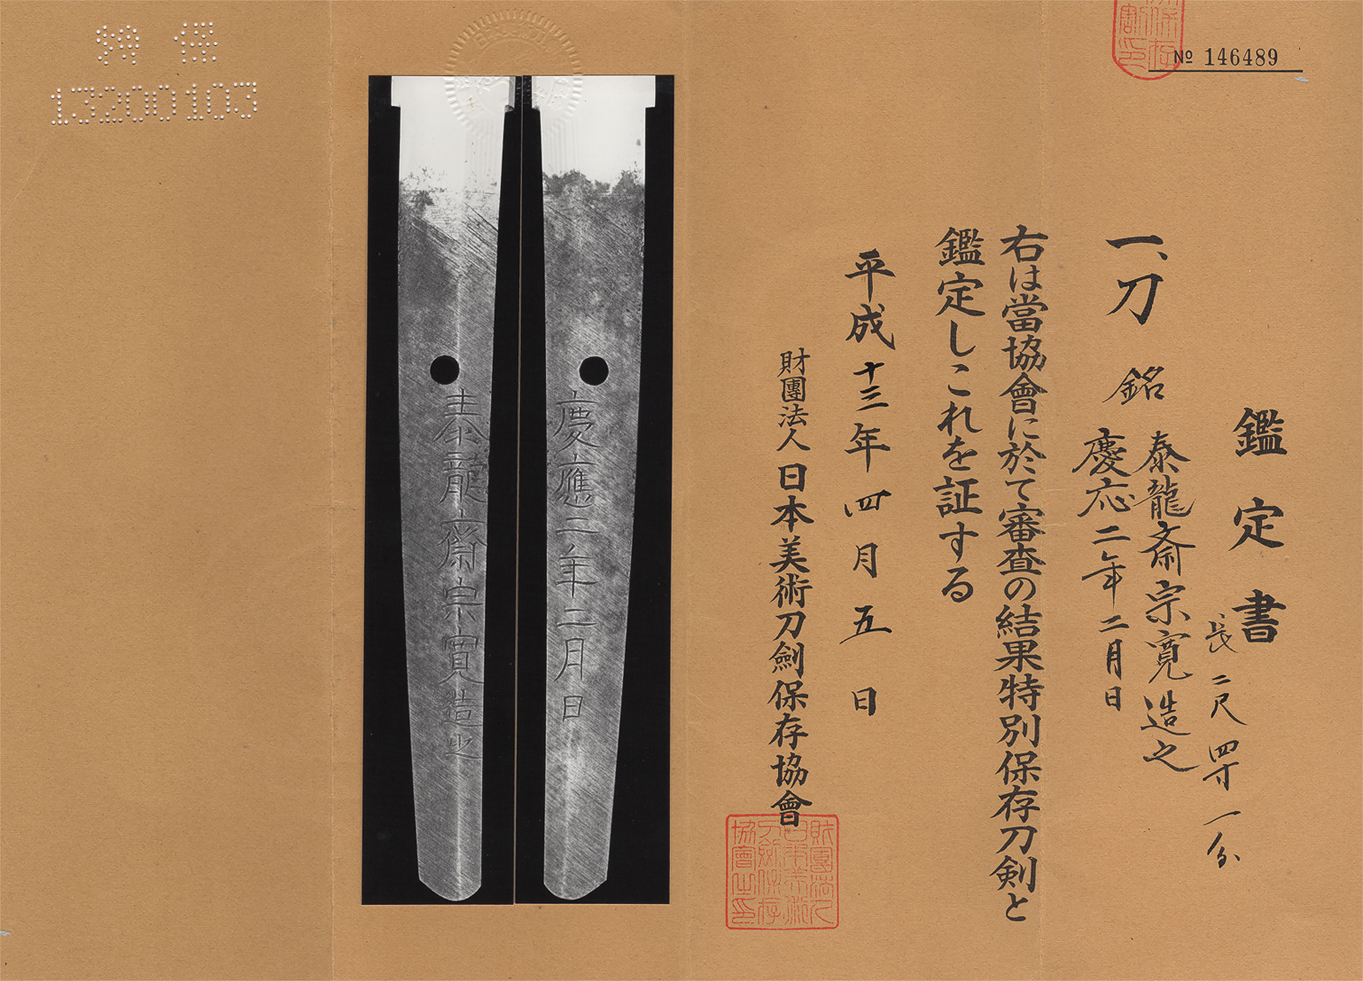 保
№ 146489
鑑定書
一、刀 銘 泰龍斎宗寛造之
慶応二年二月日
長 二尺四寸一分
右は當協會に於て審査の結果特別保存刀剣と
鑑定しこれを証する
平成十三年四月五日
財團法人日本美術刀劍保存協會
財團法人
日本美術
刀劍保存
協會之印
慶應二年二月日
泰龍齋宗寛造之
特 保
13200103